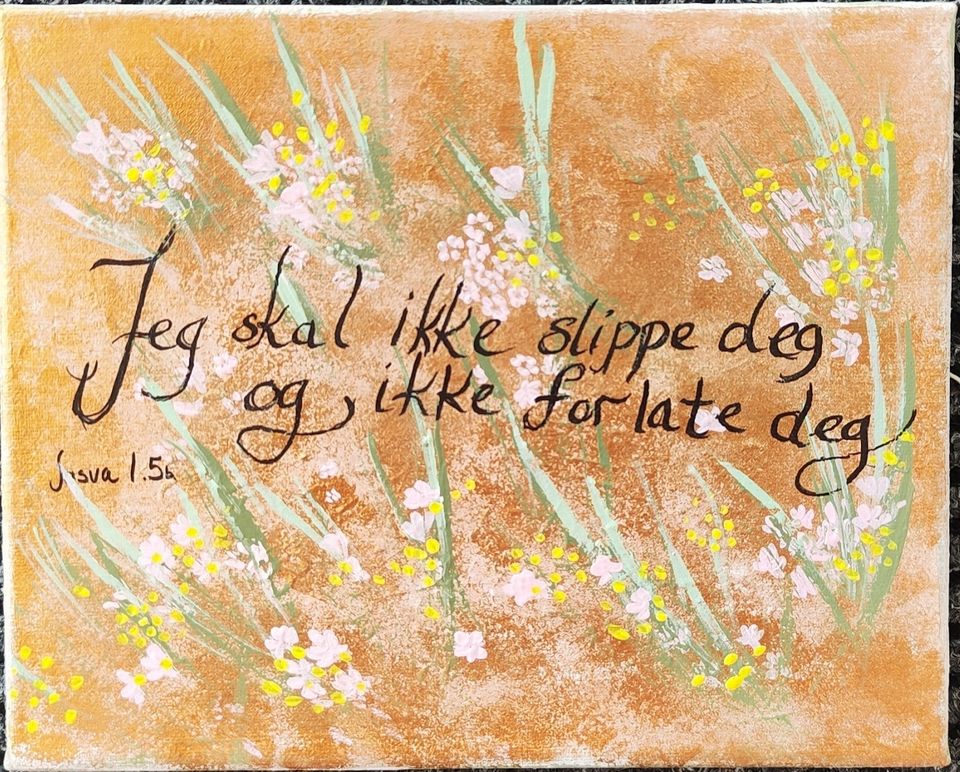 Jeg skal ikke slippe deg
og ikke forlate deg
Josva 1.5b